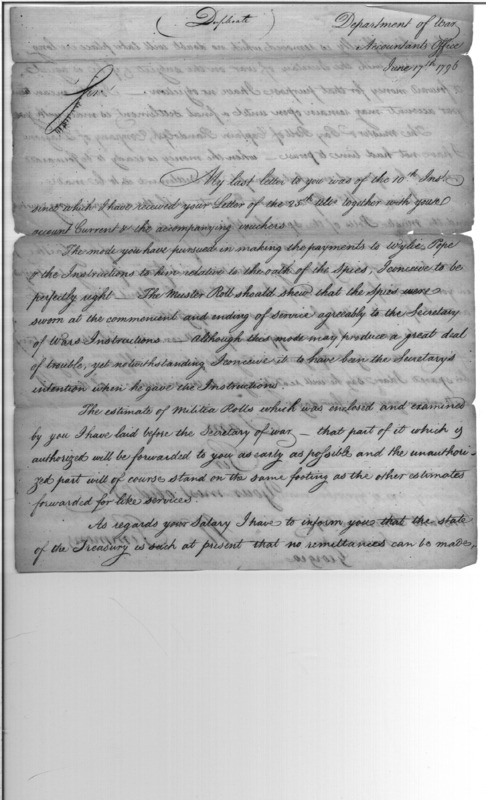 (Duplicate)
Department of War.
Accountants Office
June 17th 1796
Sir.
My last letter to you was of the 10th Inst.
since which I have received your Letter of the 25th ulto together with your
account Current & the accompanying vouchers
The mode you have pursued in making the payments to Wylie Pope
& the Instructions to him relative to the oath of the Spies, I conceive to be
perfectly right — The Muster Roll should show that the Spies were
sworn at the commencement and ending of service agreeably to the Secretary
of Wars Instructions although this mode may produce a great deal
of trouble, yet notwithstanding I conceive it to have been the Secretary's
intention when he gave the Instructions
The estimate of Militia Rolls which was enclosed and examined
by you I have laid before the Secretary of war — that part of it which is
authorized will be forwarded to you as early as possible and the unauthori-
zed part will of course stand on the same footing as the other estimates
forwarded for like services
As regards your Salary I have to inform you that the state
of the Treasury is such at present that no remittances can be made,